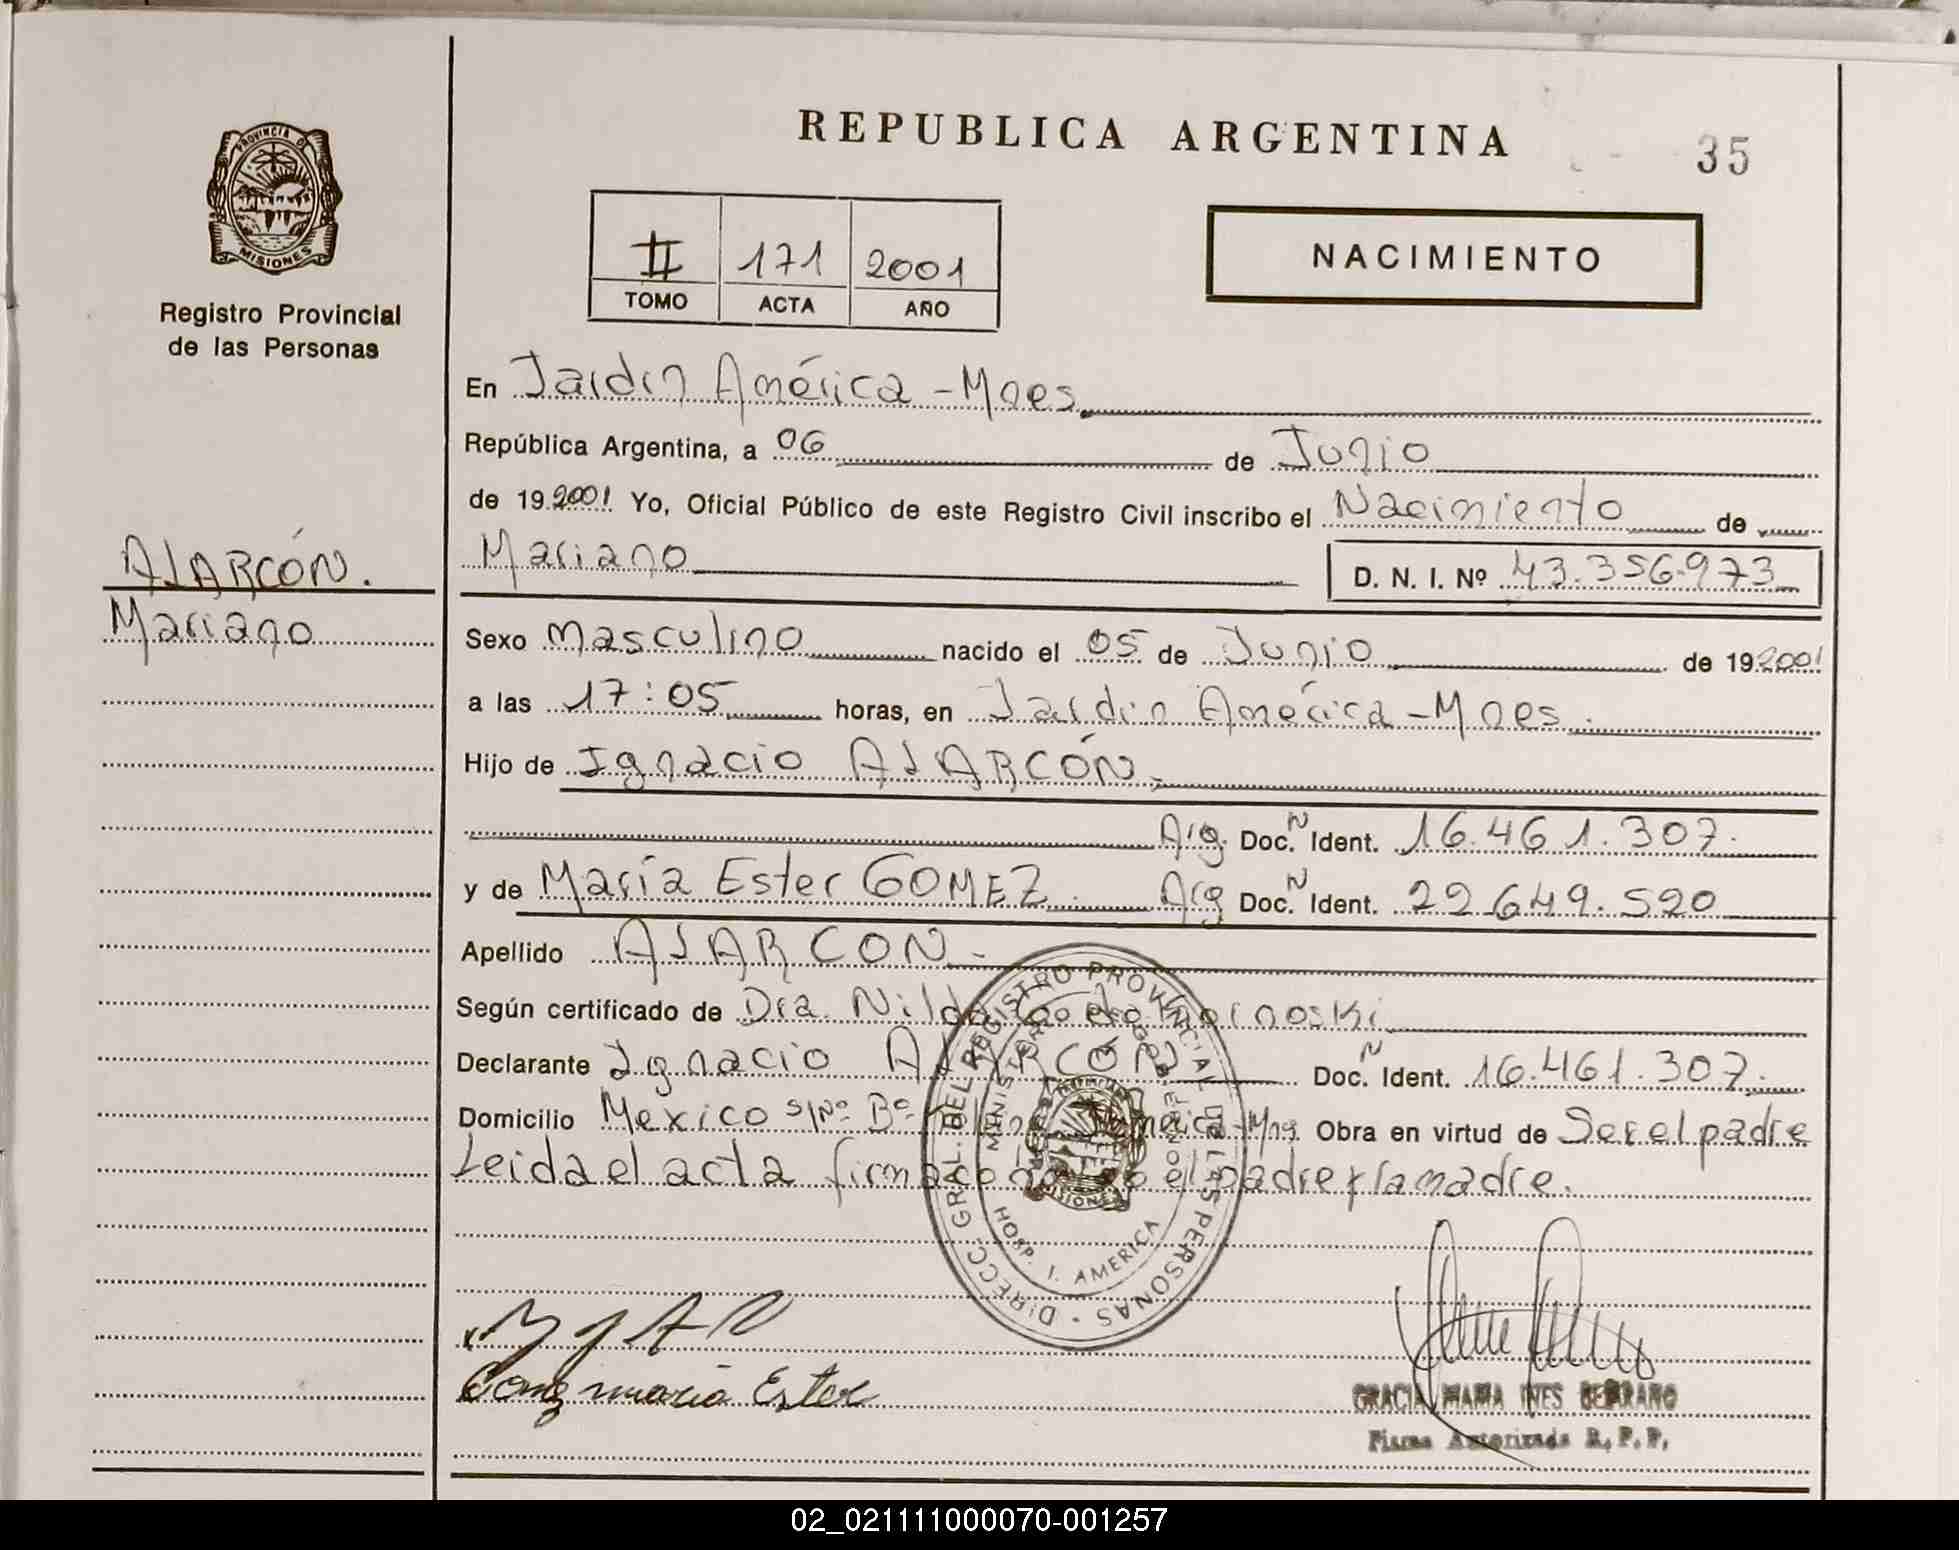 REPUBLICA ARGENTINA
35
PROVINCIA DE
MISIONES
Registro Provincial
de las Personas
II 171 2001
TOMO ACTA AÑO
NACIMIENTO
En Jardín América - Mnes.
República Argentina, a 06 de Junio
de 19 2001 Yo, Oficial Público de este Registro Civil inscribo el Nacimiento de
ALARCÓN.
Mariano
Mariano D. N. I. Nº 43.356.973
Sexo masculino nacido el 05 de Junio de 19 2001
a las 17:05 horas, en Jardín América - Mnes.
Hijo de Ignacio ALARCÓN.
Arg. Doc. N Ident. 16.461.307.
y de María Ester GOMEZ. Arg Doc. N Ident. 22.649.520
Apellido ALARCON.-
Según certificado de Dra. Nilda
Declarante Ignacio ALARCON Doc. N Ident. 16.461.307.
Domicilio Mexico s/Nº Bº América - Mns. Obra en virtud de Ser el padre
Leida el acta firma el padre y la madre.
DIRECC. GRAL. DEL REGISTRO PROVINCIAL DE LAS PERSONAS
HOSP. J. AMERICA
MISIONES
Gomez maria Ester
GRACIA MARIA INES BEJARANO
Firma Autorizada R. P. P.
02_021111000070-001257